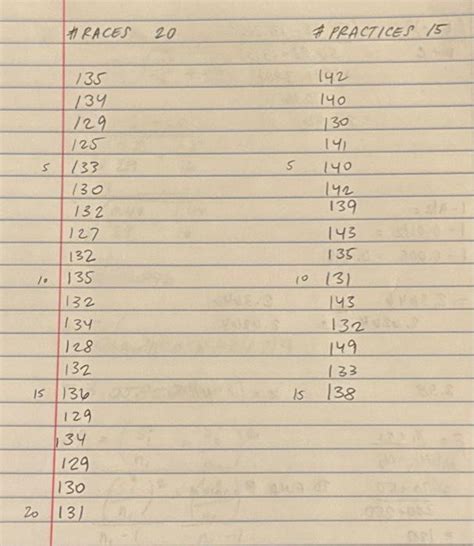 # RACES 20 # PRACTICES 15
135 142
134 140
129 130
125 141
5 133 5 140
130 142
132 139
127 143
132 135
10 135 10 131
132 143
134 132
128 149
132 133
15 136 15 138
129
134
129
130
20 131